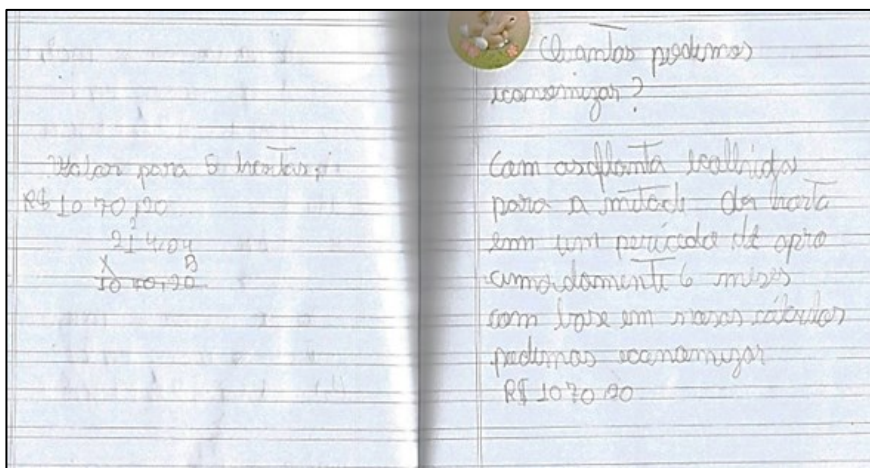 Valor para 5 hortas é
R$ 10 70,20
2
214,04
X 5
10 70,20
Quantos podemos
economizar?
Com as planta escolhidas
para a metade da horta
em um período de apro
cimadamente 6 meses
com base em nosos cálculos
podemos economizar
R$ 1070 20